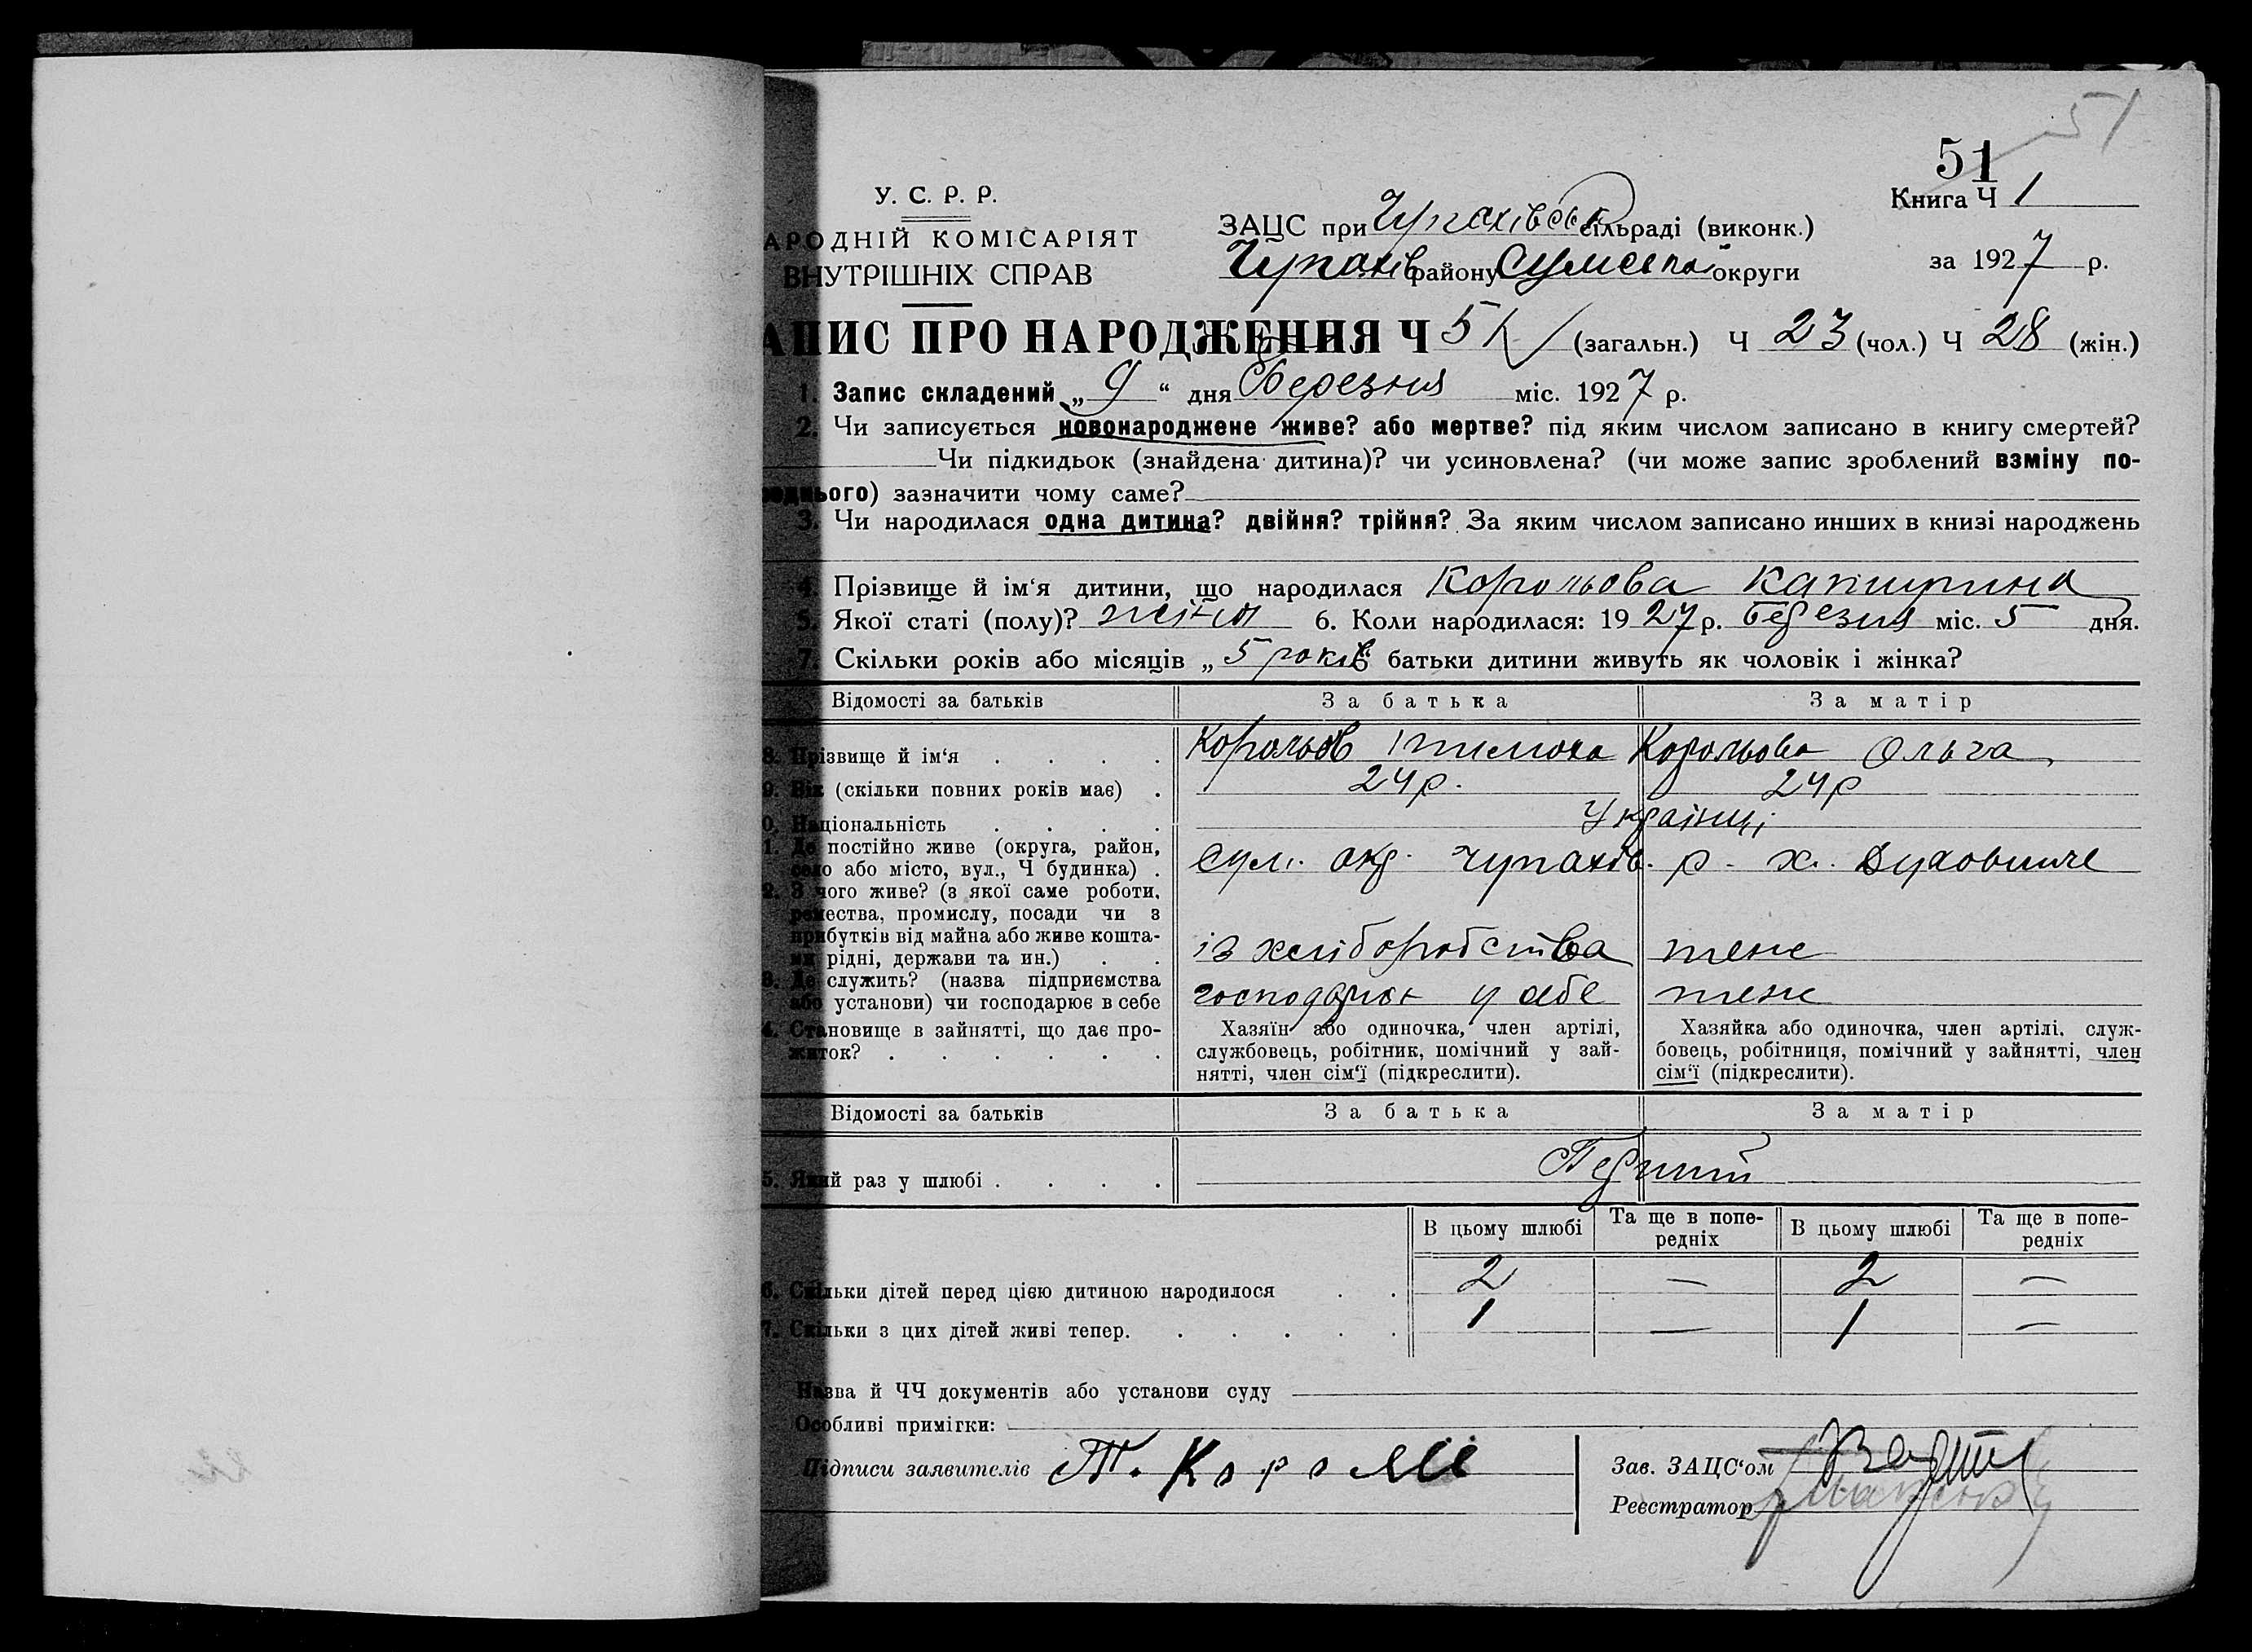 51
51
Книга Ч 1
У. С. Р. Р.
ЗАЦС при Чупахівськ сільраді (виконк.)
АРОДНІЙ КОМІСАРІЯТ
ВНУТРІШНІХ СПРАВ
Чупахів району Сумської округи
за 1927 р.
АПИС ПРО НАРОДЖЕННЯ Ч 51 (загальн.) Ч 23 (чол.) Ч 28 (жін.)
1. Запис складений „ 9 “ дня Березня міс. 1927 р.
2. Чи записується новонароджене живе? або мертве? під яким числом записано в книгу смертей?
Чи підкидьок (знайдена дитина)? чи усиновлена? (чи може запис зроблений взміну по-
реднього) зазначити чому саме?
3. Чи народилася одна дитина? двійня? трійня? За яким числом записано инших в книзі народжень
4. Прізвище й ім‘я дитини, що народилася Корольова Катирина
5. Якої статі (полу)? жіноч 6. Коли народилася: 1927 р. Березня міс. 5 дня.
7. Скільки років або місяців „ 5 років “ батьки дитини живуть як чоловік і жінка?
Відомості за батьків За батька За матір
8. Прізвище й ім‘я . . . . Корольов Тимоха Корольова Ольга
9. Вік (скільки повних років має) . 24 р. 24 р
0. Національність . . . . Українці
1. Де постійно живе (округа, район,
село або місто, вул., Ч будинка) . Сум. окр. Чупахів. р. х. Духовище
2. З чого живе? (з якої саме роботи,
ремества, промислу, посади чи з
прибутків від майна або живе кошта-
ми рідні, держави та ин.) . . із хліборобства теж
3. Де служить? (назва підприємства
або установи) чи господарює в себе господарює у себе теж
4. Становище в зайнятті, що дає про-
житок? . . . . . .
Хазяїн або одиночка, член артілі,
службовець, робітник, помічний у зай-
нятті, член сім‘ї (підкреслити).
Хазяйка або одиночка, член артілі, служ-
бовець, робітниця, помічний у зайнятті, член
сім‘ї (підкреслити).
Відомості за батьків За батька За матір
5. Який раз у шлюбі . . . . Перший
В цьому шлюбі Та ще в попе-
редніх В цьому шлюбі Та ще в попе-
редніх
6. Скільки дітей перед цією дитиною народилося . . 2 — 2 —
7. Скільки з цих дітей живі тепер. . . . . . 1 — 1 —
Назва й ЧЧ документів або установи суду
Особливі примітки:
Підписи заявителів Т. Корол
Зав. ЗАЦС‘ом
Реєстратор